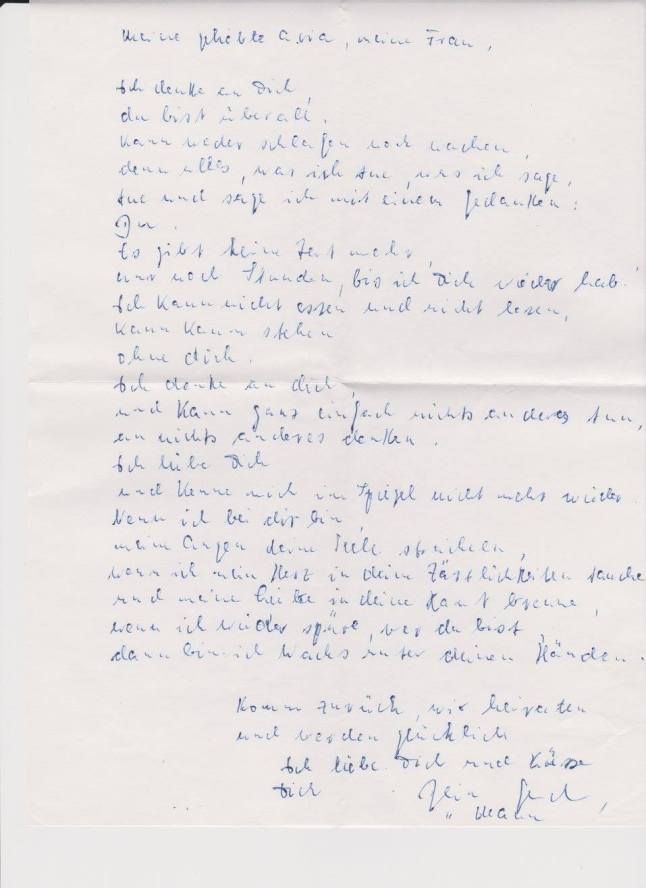 Meine geliebte , meine Frau,
Ich denke an Dich,
du bist überall.
Kann weder schlafen noch wachen,
denn alles, was ich tue, was ich sage,
tue und sage ich mit einem Gedanken:
Du.
Es gibt keine Zeit mehr,
nur noch Stunden, bis ich Dich wieder hab.
Ich kann nicht essen und nicht lesen,
kann kaum stehen
ohne dich.
Ich denke an dich,
und kann ganz einfach nichts anderes tun,
an nichts anderes denken.
Ich liebe Dich
und kenne mich im Spiegel nicht mehr wieder.
Wenn ich bei dir bin,
meine Augen deine Seele streicheln,
wenn ich mein Herz in deine Zärtlichkeiten tauche
und meine Liebe in deine Haut brenne,
wenn ich wieder spüre, wer du bist,
dann bin ich Wachs unter deinen Händen.
Komm zurück, wir heiraten
und werden glücklich
Ich liebe Dich und küsse
Dich Dein ,
" Mann